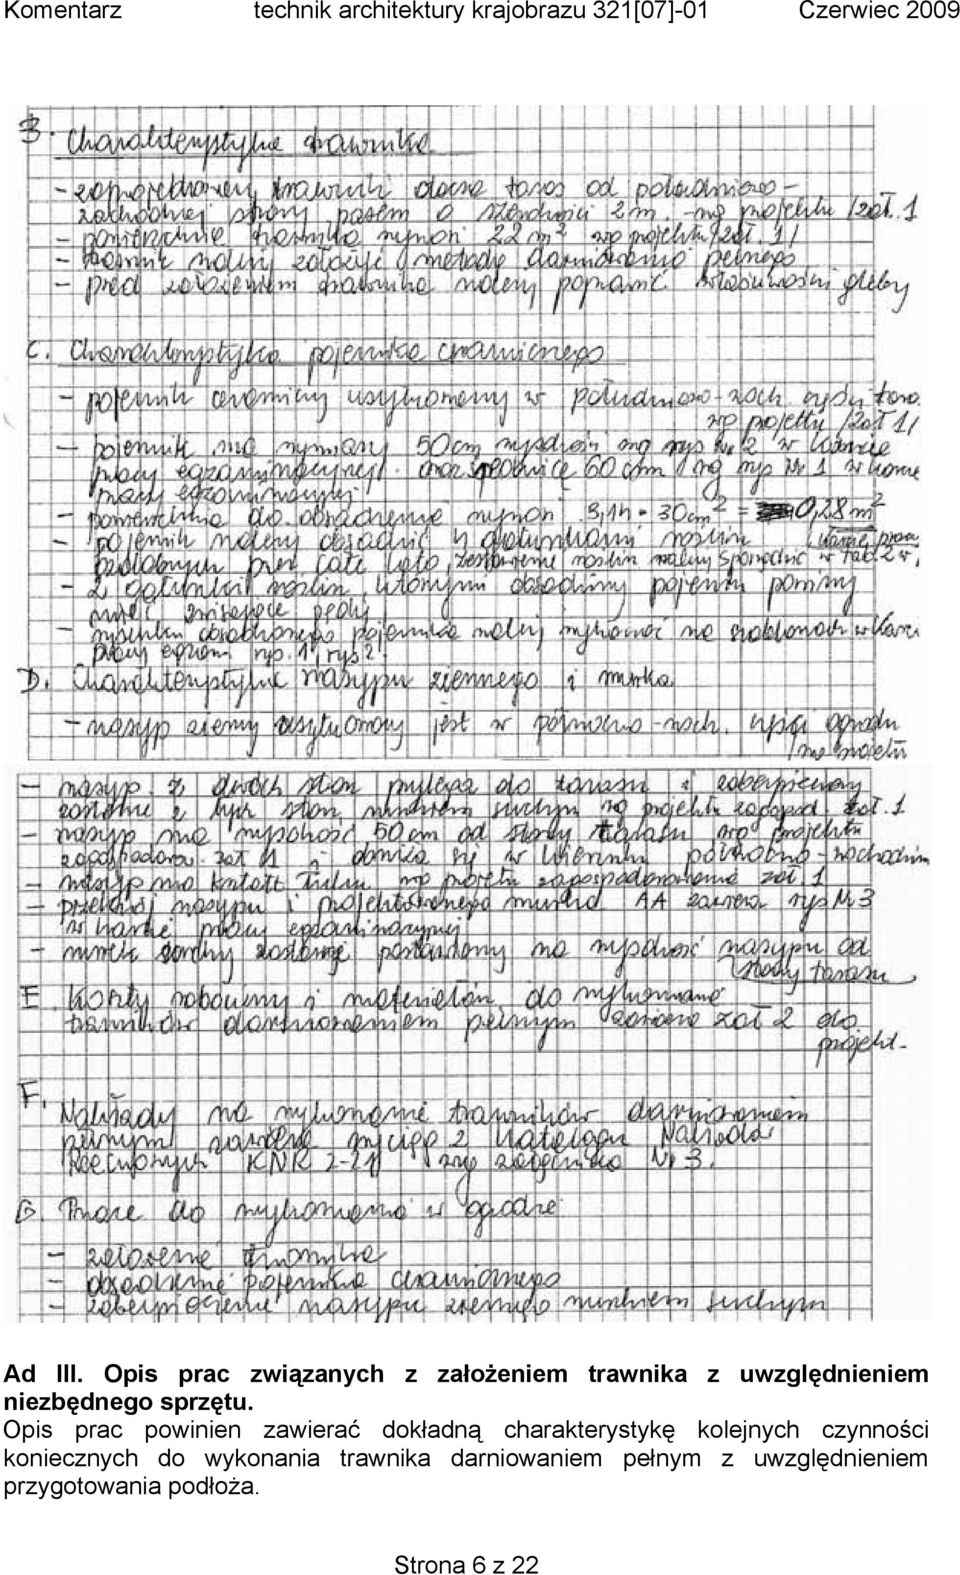 Komentarz technik architektury krajobrazu 321[07]-01 Czerwiec 2009
B. Charakterystyka trawnika
- zaprojektowany trawnik otacza taras od południowo-
zachodniej strony pasem o szerokości 2m. - wg projektu /zał. 1
- powierzchnia trawnika wynosi 22 m² wg projektu /zał. 1/
- trawnik należy założyć metodą darniowania pełnego
- przed założeniem trawnika należy poprawić właściwości gleby
C. Charakterystyka pojemnika ceramicznego
- pojemnik ceramiczny usytuowany w południowo-zach. części taras
wg projektu /zał 1/
- pojemnik ma wymiary 50cm wysokości wg rys nr 2 w karcie
pracy egzaminacyjnej. oraz średnicę 60 cm wg rys Nr 1 w karcie
pracy egzaminacyjnej
- powierzchnia do obsadzenia wynosi 3,14 · 30cm² = 0,28 m²
- pojemnik należy obsadzić 4 gatunkami roślin
ozdobnych przez całe lato, zestawienie roślin należy sporządzić w tab. 2 w karcie prac
- 2 gatunki roślin, którymi obsadzimy pojemnik powinny
mieć zwisające pędy
- rysunki obsadzonego pojemnika należy wykonać na szablonach w karcie
pracy egzam rys. 1, rys 2.
D. Charakterystyka nasypu ziemnego i murka
- nasyp ziemny usytuowany jest w północno-zach. części ogrodu
- nasyp z dwóch stron przylega do tarasu i zabezpieczony
zostanie z tych stron murkiem suchym wg projektu zagospod. zał. 1
- nasyp ma wysokość 50cm od strony tarasu wg projektu
zagospodarow. zał 1 i obniża się w kierunku północno-zachodnim
- nasyp ma kształt łuku wg projektu zagospodarowania zał. 1
- przekrój nasypu i projektowanego murka AA zawiera rys Nr 3
w karcie pracy egzaminacyjnej
- murek suchy zostanie postawiony na wysokość nasypu od
strony tarasu
E. Koszty robocizny i materiałów do wykonania
trawników darniowaniem pełnym zawiera zał 2 do
projekt.
F. Nakłady na wykonanie trawników darniowaniem
pełnym zawiera wyciąg z Katalogu Nakładów
Rzeczowych KNR 2-21 wg załącznika Nr 3.
G. Prace do wykonania w ogrodzie
- założenie trawnika
- obsadzenie pojemnika ceramicznego
- zabezpieczenie nasypu ziemnego murkiem suchym
Ad III. Opis prac związanych z założeniem trawnika z uwzględnieniem
niezbędnego sprzętu.
Opis prac powinien zawierać dokładną charakterystykę kolejnych czynności
koniecznych do wykonania trawnika darniowaniem pełnym z uwzględnieniem
przygotowania podłoża.
Strona 6 z 22